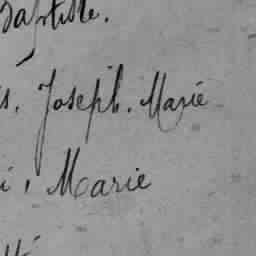 Baptiste.
s. Joseph. Marie
i, Marie